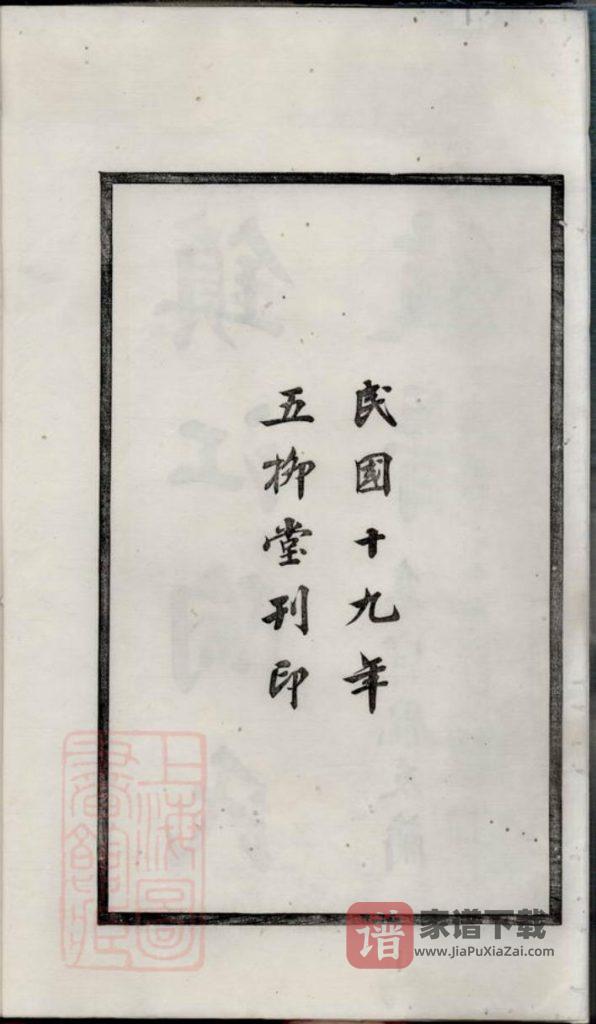 民國十九年
五柳堂刊印
上海圖
書館藏
谱 家谱下载
www.JiaPuXiaZai.com